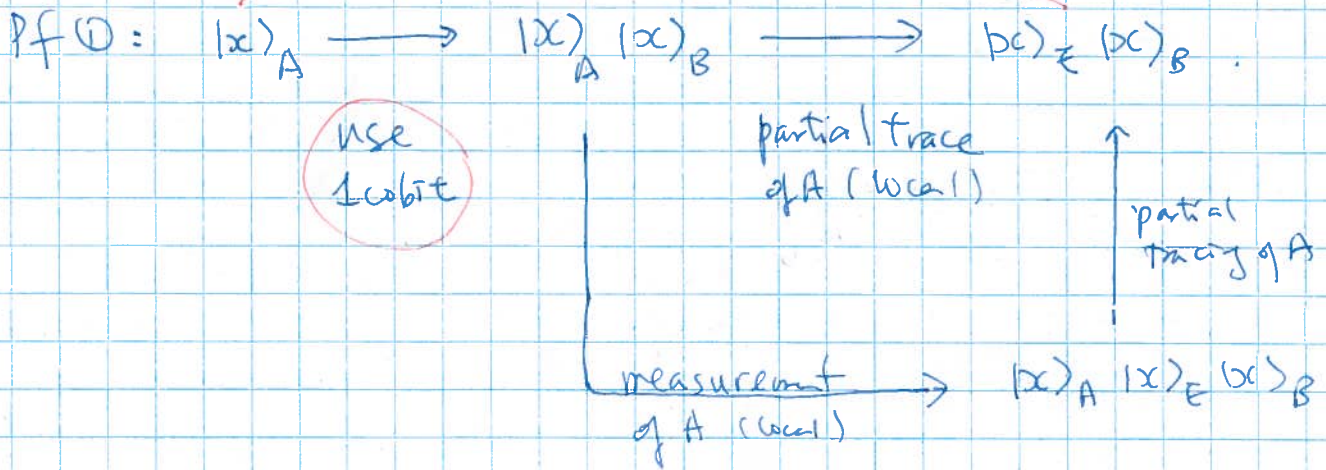 Pf ①: |x⟩_A ⟶ |x⟩_A |x⟩_B ⟶ |x⟩_E |x⟩_B .
use
1 cobit
partial trace
of A (local)
partial
tracing of A
measurement
of A (local)
|x⟩_A |x⟩_E |x⟩_B